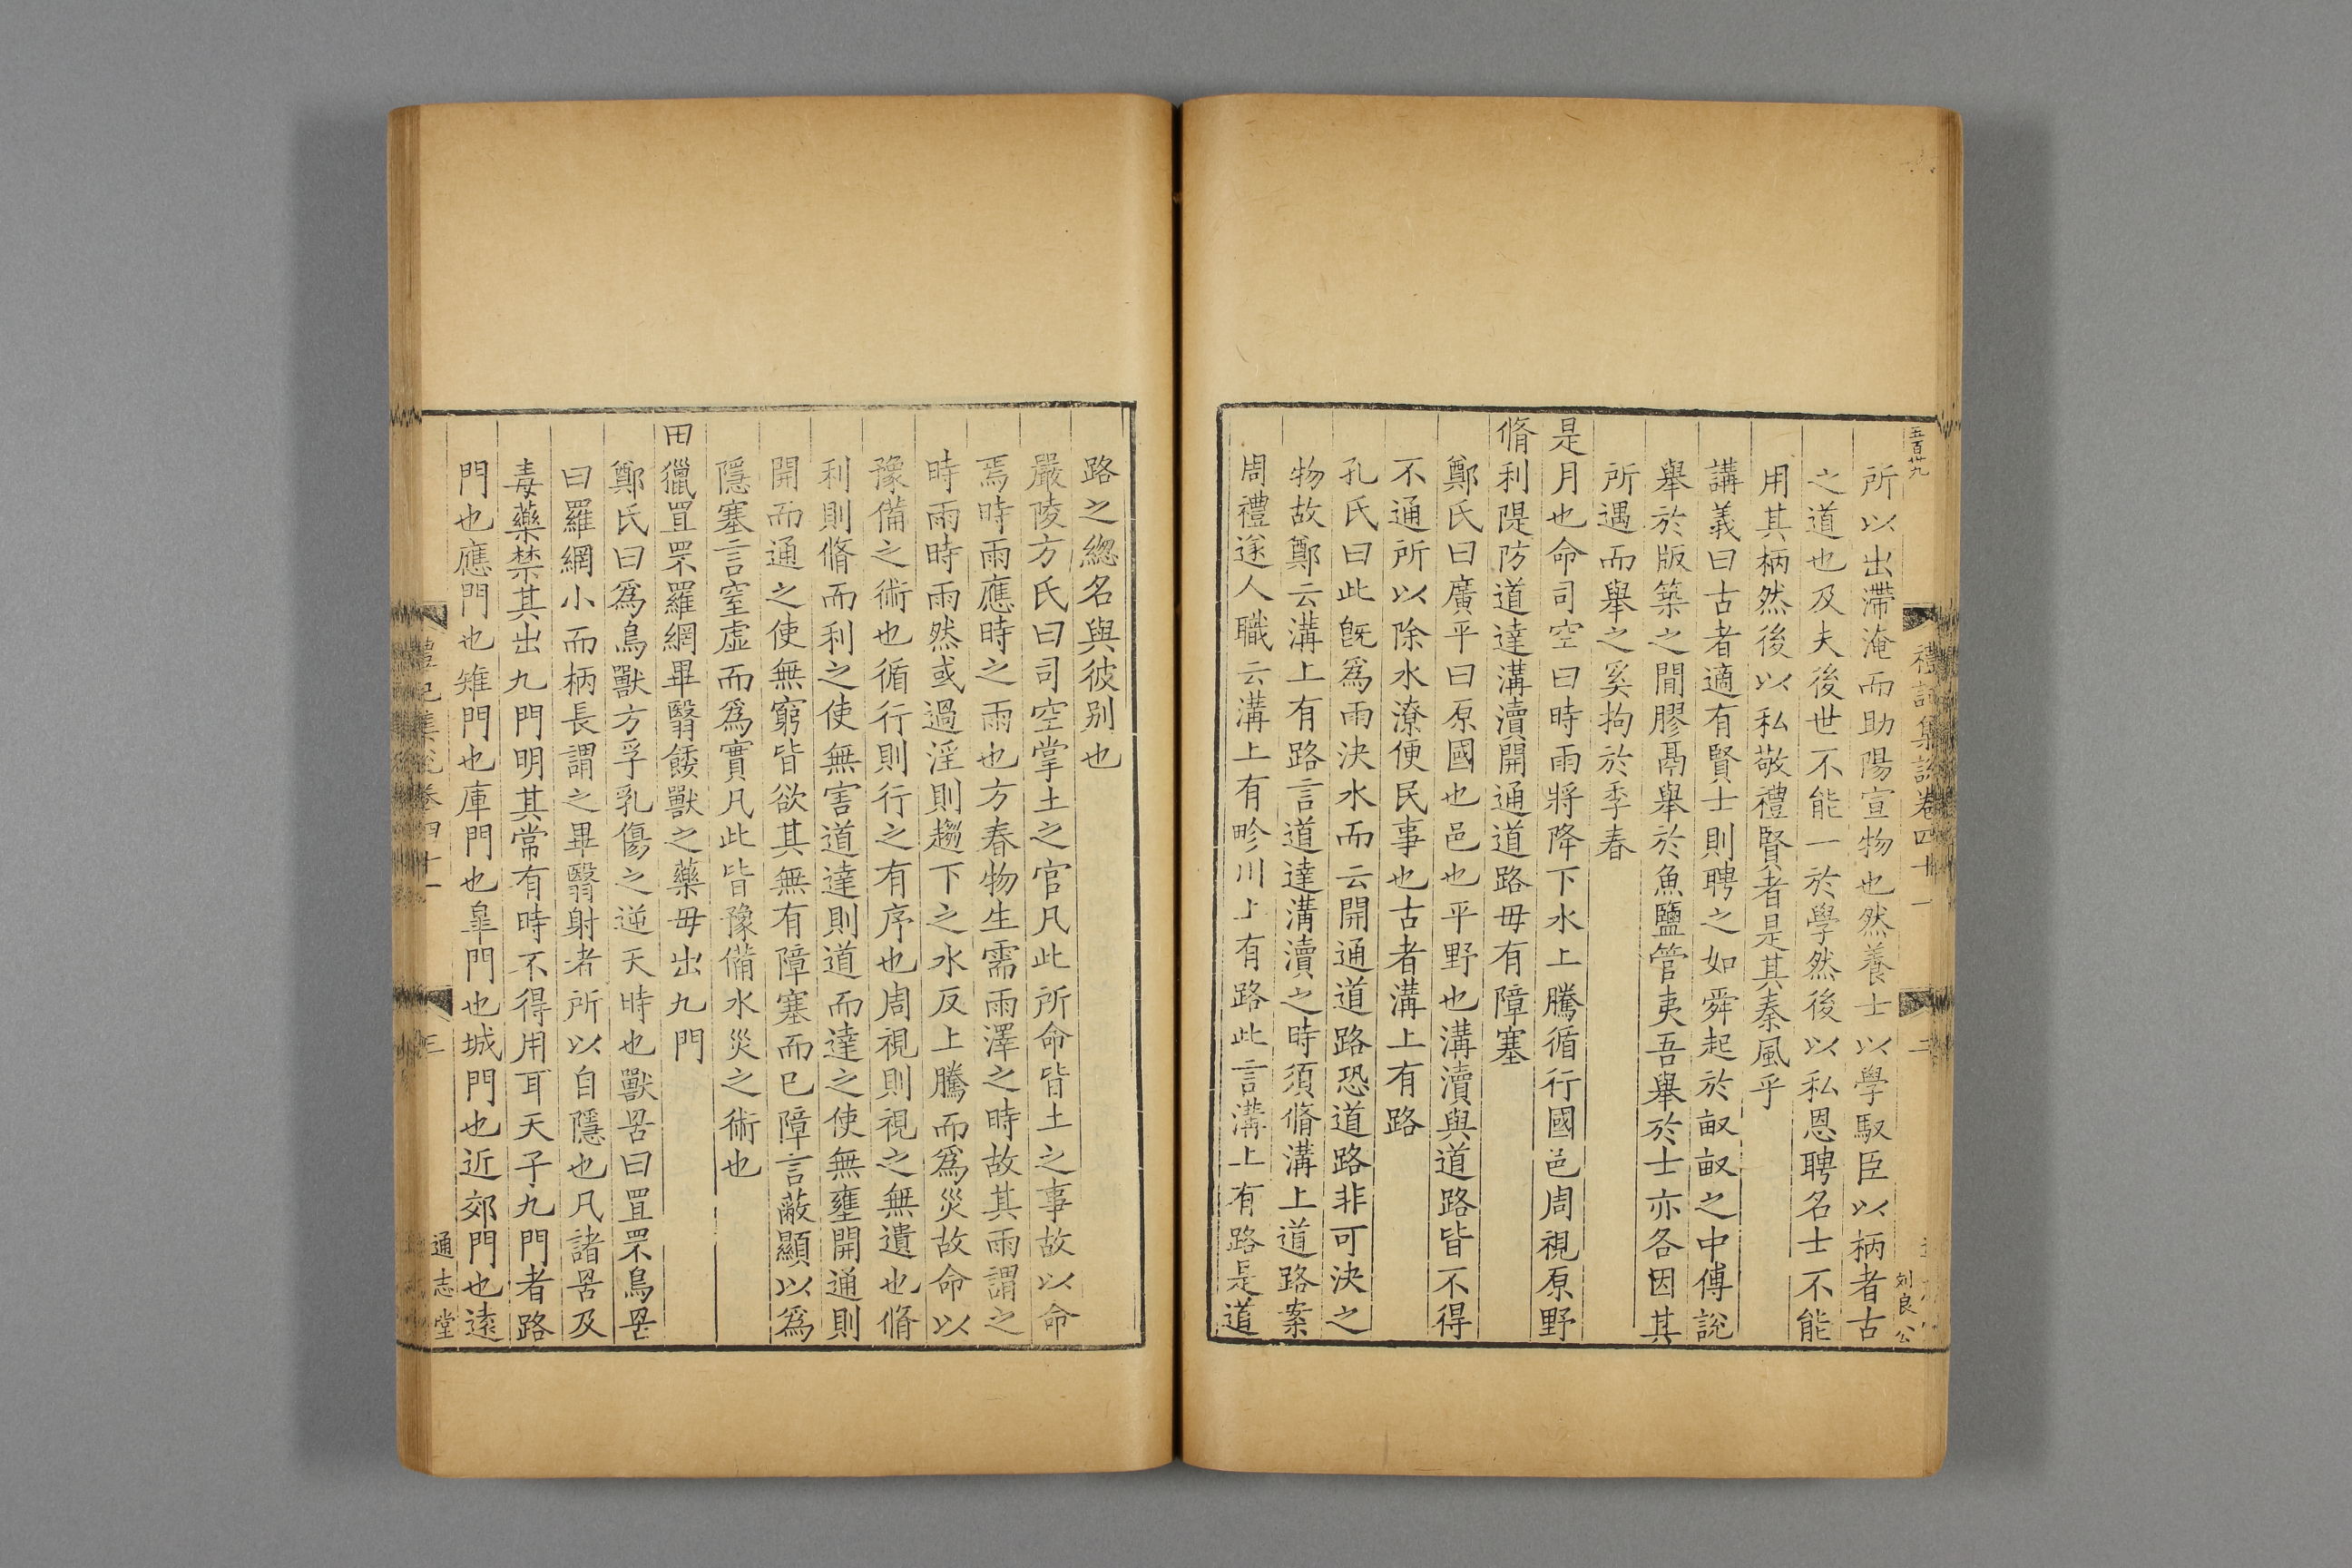 五百卅九
禮記集說卷四十一
二
刘良公
所以出滯淹而助陽宣物也然養士以學馭臣以柄者古
之道也及夫後世不能一於學然後以私恩聘名士不能
用其柄然後以私敬禮賢者是其秦風乎
講義曰古者適有賢士則聘之如舜起於畎畝之中傅說
舉於版築之間膠鬲舉於魚鹽管夷吾舉於士亦各因其
所遇而舉之奚拘於季春
是月也命司空曰時雨將降下水上騰循行國邑周視原野
脩利隄防道達溝瀆開通道路毋有障塞
鄭氏曰廣平曰原國也邑也平野也溝瀆與道路皆不得
不通所以除水潦便民事也古者溝上有路
孔氏曰此旣爲雨決水而云開通道路恐道路非可決之
物故鄭云溝上有路言道達溝瀆之時須脩溝上道路案
周禮遂人職云溝上有畛川上有路此言溝上有路是道
路之緫名與彼别也
嚴陵方氏曰司空掌土之官凡此所命皆土之事故以命
焉時雨應時之雨也方春物生需雨澤之時故其雨謂之
時雨時雨然或過淫則趨下之水反上騰而爲災故命以
豫備之術也循行則行之有序也周視則視之無遺也脩
利則脩而利之使無害道達則道而達之使無壅開通則
開而通之使無窮皆欲其無有障塞而已障言蔽顯以爲
隱塞言窒虛而爲實凡此皆豫備水災之術也
田獵罝罘羅網畢翳餧獸之藥毋出九門
鄭氏曰爲鳥獸方孚乳傷之逆天時也獸罟曰罝罘鳥罟
曰羅網小而柄長謂之畢翳射者所以自隱也凡諸罟及
毒藥禁其出九門明其常有時不得用耳天子九門者路
門也應門也雉門也庫門也皐門也城門也近郊門也遠
禮記集說卷四十一
三
通志堂